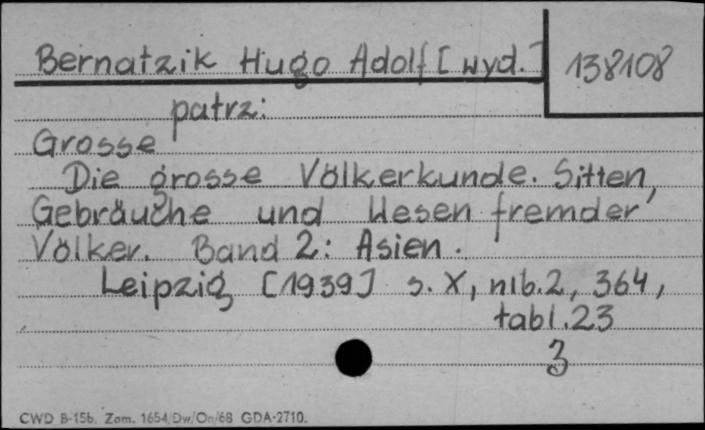 Bernatzik Hugo Adolf [wyd.]
138108
patrz:
Grosse
Die grosse Völkerkunde. Sitten,
Gebräuche und Wesen fremder
Völker. Band 2: Asien.
Leipzig [1939] s. X, nlb.2, 364,
tabl.23
3
CWD B-15b. Zam. 1654/Dw/On/68 GDA-2710.